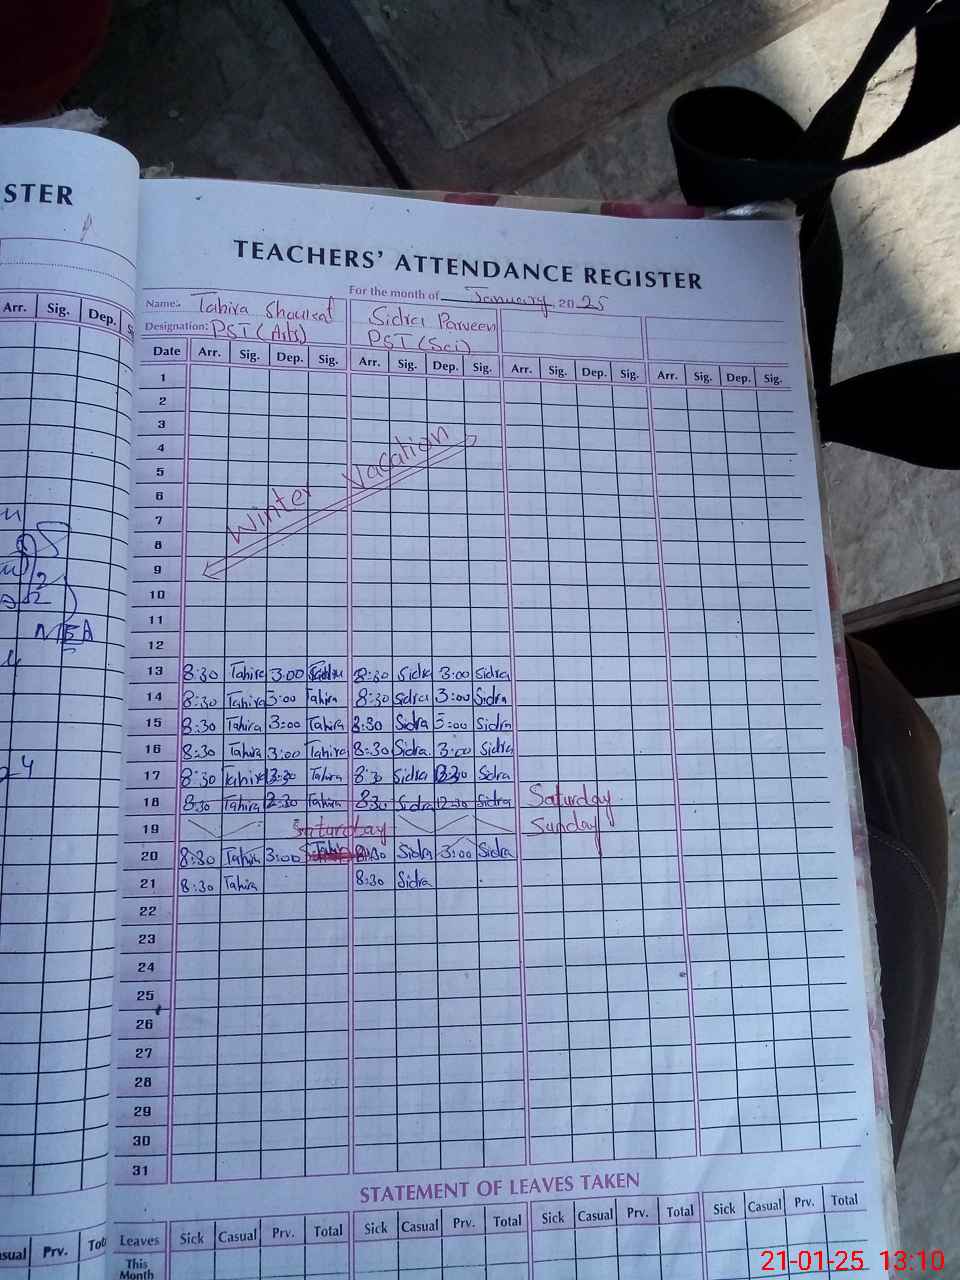 STER
TEACHERS' ATTENDANCE REGISTER
For the month of January 2025
Name:- Tahira Shoukat Sidra Parveen
Designation: PST (Arts) PST (Sci)
Arr. Sig. Dep.
Date Arr. Sig. Dep. Sig. Arr. Sig. Dep. Sig. Arr. Sig. Dep. Sig. Arr. Sig. Dep. Sig.
1
2
3
4
5
6
7
8
9
Winter Vacation
10
11
12
13 8:30 Tahira 3:00 8:30 Sidra 3:00 Sidra
14 8:30 Tahira 3:00 Tahira 8:30 Sidra 3:00 Sidra
15 8:30 Tahira 3:00 Tahira 8:30 Sidra 3:00 Sidra
16 8:30 Tahira 3:00 Tahira 8:30 Sidra 3:00 Sidra
17 8:30 Tahira Tahira 8:30 Sidra Sidra
18 8:30 Tahira 2:30 Tahira 8:30 Sidra 2:30 Sidra Saturday
19 Saturday Sunday
20 8:30 Tahira 3:00 Tahira 8:30 Sidra 3:00 Sidra
21 8:30 Tahira 8:30 Sidra
22
23
24
25
26
27
28
29
30
31
STATEMENT OF LEAVES TAKEN
Leaves Sick Casual Prv. Total Sick Casual Prv. Total Sick Casual Prv. Total Sick Casual Prv. Total
This
Month
sual Prv.
21-01-25 13:10